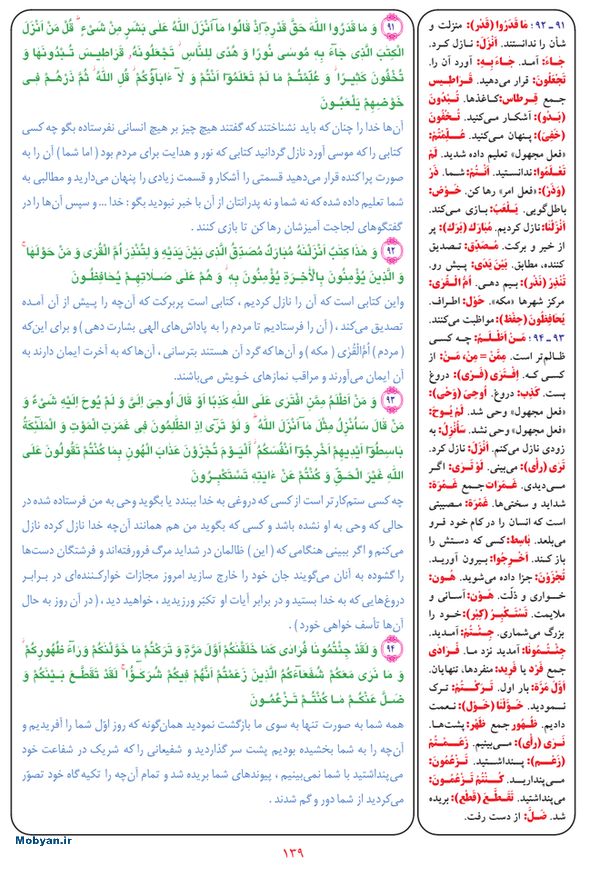 ۹۱
وَ مَا قَدَرُوا اللهَ حَقَّ قَدْرِهِٓ إِذْ قَالُوا مَآ أَنْزَلَ اللهُ عَلَى بَشَرٍ مِنْ شَيْءٍ ۗ قُلْ مَنْ أَنْزَلَ
الْكِتَبَ الَّذِي جَآءَ بِهِ مُوسَى نُورًا وَ هُدًى لِلنَّاسِ ۖ تَجْعَلُونَهُ قَرَاطِيسَ تُبْدُونَهَا وَ
تُخْفُونَ كَثِيرًا ۖ وَ عُلِّمْتُمْ مَا لَمْ تَعْلَمُوٓا أَنْتُمْ وَ لَآ ءَابَآؤُكُمْ ۖ قُلِ اللهُ ۖ ثُمَّ ذَرْهُمْ فِي
خَوْضِهِمْ يَلْعَبُونَ
آن‌ها خدا را چنان که باید نشناختند که گفتند هیچ چیز بر هیچ انسانی نفرستاده بگو چه کسی
کتابی را که موسی آورد نازل گردانید کتابی که نور و هدایت برای مردم بود ( اما شما ) آن را به
صورت پراکنده قرار می‌دهید قسمتی را آشکار و قسمت زیادی را پنهان می‌دارید و مطالبی به
شما تعلیم داده شده که نه شما و نه پدرانتان از آن با خبر نبودید بگو : خدا ... و سپس آن‌ها را در
گفتگوهای لجاجت آمیزشان رها کن تا بازی کنند.
۹۲
وَ هَذَا كِتَبٌ أَنْزَلْنَهُ مُبَارَكٌ مُصَدِّقُ الَّذِي بَيْنَ يَدَيْهِ وَ لِتُنْذِرَ أُمَّ الْقُرَى وَ مَنْ حَوْلَهَا ۚ
وَ الَّذِينَ يُؤْمِنُونَ بِالْأَخِرَةِ يُؤْمِنُونَ بِهِ ۖ وَ هُمْ عَلَى صَلَاتِهِمْ يُحَافِظُونَ
واین کتابی است که آن را نازل کردیم ، کتابی است پربرکت که آن‌چه را پـیـش از آن آمـده
تصدیق می‌کند ، ( آن را فرستادیم تا مردم را به پاداش‌های الهی بشارت دهی ) و برای این‌که
( مردم ) أُمُّ‌الْقُرَى ( مکه ) و آن‌ها که گرد آن هستند بترسانی ، آن‌ها که به آخرت ایمان دارند به
آن ایمان می‌آورند و مراقب نمازهای خویش می‌باشند.
۹۳
وَ مَنْ أَظْلَمُ مِمَّنِ افْتَرَى عَلَى اللهِ كَذِبًا أَوْ قَالَ أُوحِيَ إِلَيَّ وَ لَمْ يُوحَ إِلَيْهِ شَيْءٌ وَ
مَنْ قَالَ سَأُنْزِلُ مِثْلَ مَآ أَنْزَلَ اللهُ ۗ وَ لَوْ تَرَى إِذِ الظَّلِمُونَ فِي غَمَرَتِ الْمَوْتِ وَ الْمَلَٓئِكَةُ
بَاسِطُوٓا أَيْدِيهِمْ أَخْرِجُوٓا أَنْفُسَكُمُ ۖ الْيَوْمَ تُجْزَوْنَ عَذَابَ الْهُونِ بِمَا كُنْتُمْ تَقُولُونَ عَلَى
اللهِ غَيْرَ الْحَقِّ وَ كُنْتُمْ عَنْ ءَايَتِهِ تَسْتَكْبِرُونَ
چه کسی ستم‌کارتر است از کسی که دروغی به خدا ببندد یا بگوید وحی به من فرستاده شده در
حالی که وحی به او نشده باشد و کسی که بگوید من هم همانند آن‌چه خدا نازل کرده نازل
می‌کنم و اگر ببینی هنگامی که ( این ) ظالمان در شداید مرگ فرورفته‌اند و فرشتگان دست‌ها
را گشوده به آنان می‌گویند جان خود را خارج سازید امروز مجازات خوارکننده‌ای در برابر
دروغ‌هایی که به خدا بستید و در برابر آیات او تکبّر ورزیدید ، خواهید دید ، ( در آن روز به حال
آن‌ها تأسف خواهی خورد ) .
۹۴
وَ لَقَدْ جِئْتُمُونَا فُرَادَى كَمَا خَلَقْنَكُمْ أَوَّلَ مَرَّةٍ وَ تَرَكْتُمْ مَا خَوَّلْنَكُمْ وَرَآءَ ظُهُورِكُمْ ۖ
وَ مَا نَرَى مَعَكُمْ شُفَعَآءَكُمُ الَّذِينَ زَعَمْتُمْ أَنَّهُمْ فِيكُمْ شُرَكَٓؤُا ۚ لَقَدْ تَقَطَّعَ بَيْنَكُمْ وَ
ضَلَّ عَنْكُمْ مَا كُنْتُمْ تَزْعُمُونَ
همه شما به صورت تنها به سوی ما بازگشت نمودید همان‌گونه که روز اوّل شما را آفریدیم و
آن‌چه را به شما بخشیده بودیم پشت سر گذاردید و شفیعانی را که شریک در شفاعت خود
می‌پنداشتید با شما نمی‌بینیم ، پیوندهای شما بریده شد و تمام آن‌چه را تکیه گاه خود تصوّر
می‌کردید از شما دور و گم شدند .
۹۱ ـ ۹۲ : مَا قَدَرُوا (قَدْر): منزلت و
شأن را ندانستند. أَنْزَلَ: نازل کرد.
جَاءَ: آمد. جَاءَ بِهِ: آورد آن را.
تَجْعَلُونَ: قرار می‌دهید. قَرَاطِيس
جمع قِرطاس: کاغذها. تُبْدُونَ
(بَدُو): آشکار می‌کنید. تُخْفُونَ
(خَفِيَ): پنهان می‌کنید. عُلِّمْتُمْ:
«فعل مجهول» تعلیم داده شدید. لَمْ
تَعْلَمُوا: ندانستید. أَنْتُمْ: شما. ذَرْ
(وَذَرَ): «فعل امر» رها کن. خَوْض:
باطل‌گویی. يَلْعَبُ: بازی می‌کند.
أَنْزَلْنَا: نازل کردیم. مُبَارَك (بَرَكَ): پر
از خیر و برکت. مُصَدِّق: تصدیق
کننده، مطابق. بَيْنَ يَدَي: پیش رو.
تُنْذِرَ (نَذَر): بیم دهی. أُمّ الْقُرَى:
مرکز شهرها «مکه». حَوْل: اطراف.
يُحَافِظُونَ (حِفْظ): مواظبت می‌کنند.
۹۳ ـ ۹۴ : مَنْ أَظْلَمُ: چـه کسـی
ظالم‌تر است. مِمَّنْ = مِنْ، مَنْ: از
کسـی کـه. اِفْتَرَى (فَرَى): دروغ
بست. كَذِب: دروغ. أُوحِيَ (وَحْي):
«فعل مجهول» وحی شد. لَمْ يُوحَ:
«فعل مجهول» وحی نشد. سَأُنْزِلُ: به
زودی نازل می‌کنم. أَنْزَلَ: نازل کرد.
تَرَى (رأى): می‌بینی. لَوْ تَرَى: اگـر
مـی‌دیدی. غَمَرَات جمـع غَمْرَة:
شداید و سختی‌ها. غَمْرَة: مصیبتی
است که انسان را در کام خود فرو
می‌بلعد. بَاسِط: کسی که دستش را
باز کنـد. أَخْرِجُوا: بیرون آوریـد.
تُجْزَوْنَ: جزا داده می‌شوید. هُون:
خواری و ذلّت. هَوْن: آسانی و
ملایمت. تَسْتَكْبِرُ (كِبْر): خـود را
بزرگ می‌شماری. جِئْتُمْ: آمدید.
جِئْتُمُونَا: آمدید نزد ما. فُرَادَى
جمع فَرْد یا فَرید: منفردها، تنهایان.
أَوَّلَ مَرَّة: بار اول. تَرَكْتُمْ: ترک
نمودید. خَوَّلْنَا (خَوَل): نـعمت
دادیم. ظُهُور جمع ظَهر: پشت‌ها.
نَرَى (رأى): مـی‌بینیم. زَعَمْتُمْ
(زَعْم): پـنداشتید. تَزْعُمُونَ:
مـی‌پنداریـد. كُنْتُمْ تَزْعُمُونَ:
می‌پنداشتید. تَقَطَّعَ (قَطَعَ): بریده
شد. ضَلَّ: از دست رفت.
۱۳۹
Mobyan.ir